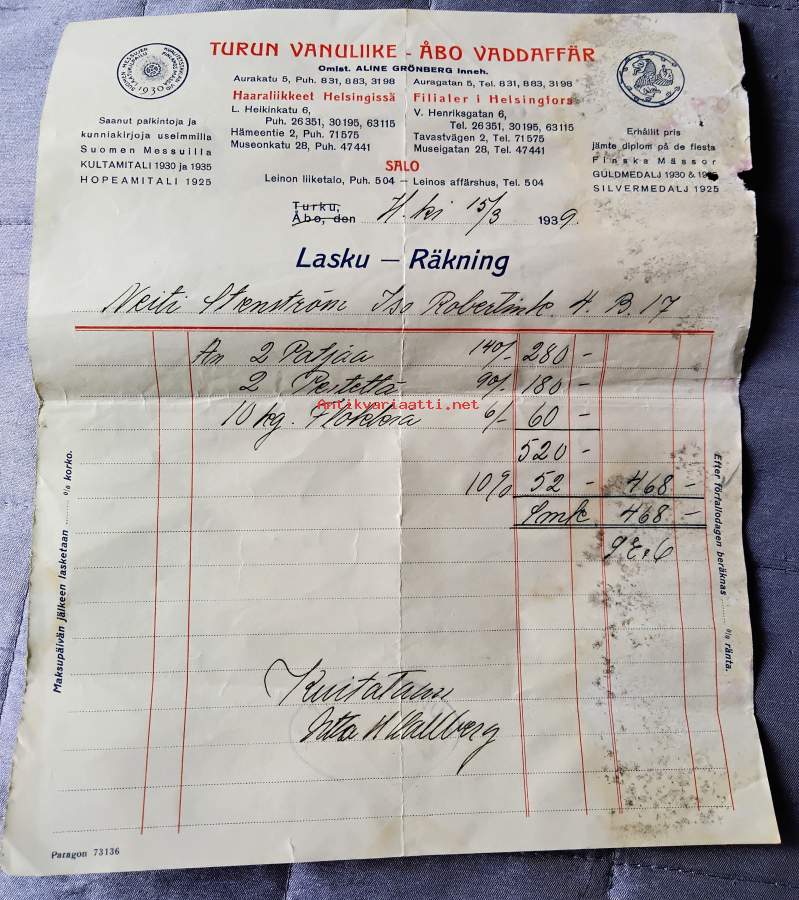 TURUN VANULIIKE - ÅBO VADDAFFÄR
Omist. ALINE GRÖNBERG Inneh.
Aurakatu 5, Puh. 831, 883, 3198
Auragatan 5, Tel. 831, 883, 3198
Haaraliikkeet Helsingissä
L. Heikinkatu 6,
Puh. 26351, 30195, 63115
Hämeentie 2, Puh. 71575
Museonkatu 28, Puh. 47441
Filialer i Helsingfors
V. Henriksgatan 6,
Tel. 26351, 30195, 63115
Tavastvägen 2, Tel. 71575
Museigatan 28, Tel. 47441
SALO
Leinon liiketalo, Puh. 504 — Leinos affärshus, Tel. 504
1930
Saanut palkintoja ja
kunniakirjoja useimmilla
Suomen Messuilla
KULTAMITALI 1930 ja 1935
HOPEAMITALI 1925
Erhållit pris
jämte diplom på de flesta
Finska Mässor
GULDMEDALJ 1930 & 1935
SILVERMEDALJ 1925
Turku,
Åbo, den H:ki 15/3 1939
Lasku — Räkning
Neiti Stenström Iso Robertink. 4. B. 17
An 2 Patjaa 140/- 280 -
2 Peitettä 90/- 180 -
10 kg. 6/- 60 -
520 -
10% 52 - 468 -
Smk 468 -
Antikvariaatti.net
Kuitataan
Wallberg
Maksupäivän jälkeen lasketaan ...... % korko.
Efter förfallodagen beräknas ...... % ränta.
Paragon 73136